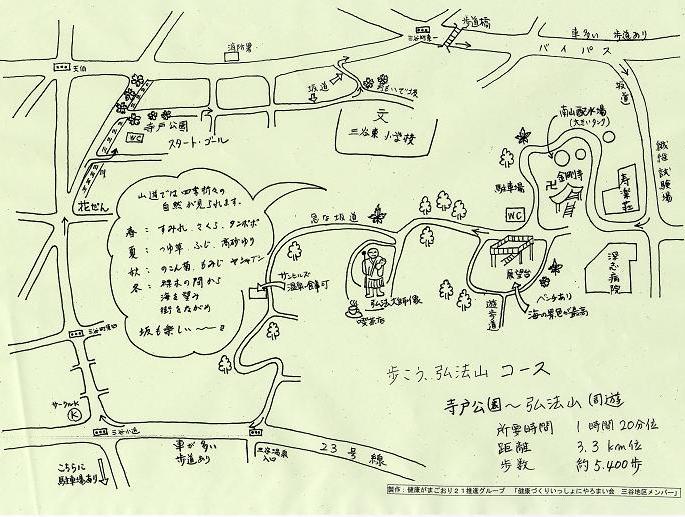 歩道橋
車多い 歩道あり
バイパス
消防署
三谷町東一
天伯
坂道
坂道
文
三谷東小学校
寺戸公園
スタート・ゴール
WC
花ぜん
南山配水場
(大きいタンク)
金剛寺
卍
駐車場
WC
寿楽荘
繊維試験場
深志病院
展望台
ベンチあり
海の景色が最高
遊歩道
急な坂道
弘法大師像
喫茶店
サンヒルズ
温泉・食事可
山道では四季折々の
自然が見られます。
春: すみれ、さくら、タンポポ
夏: つゆ草、ふじ、高砂ゆり
秋: のこん菊、もみじ
冬: 樹木の間から
海を望み
街をながめ
坂も楽しい〜〜!!
サークルK
K
こちらに
駐車場あり
車が多い
歩道あり
三谷温泉
入口
23号線
歩こう、弘法山 コース
寺戸公園〜弘法山 周遊
所要時間 1時間20分位
距離 3.3km位
歩数 約5,400歩
製作:健康がまごおり21推進グループ 「健康づくりいっしょにやろまい会 三谷地区メンバー」